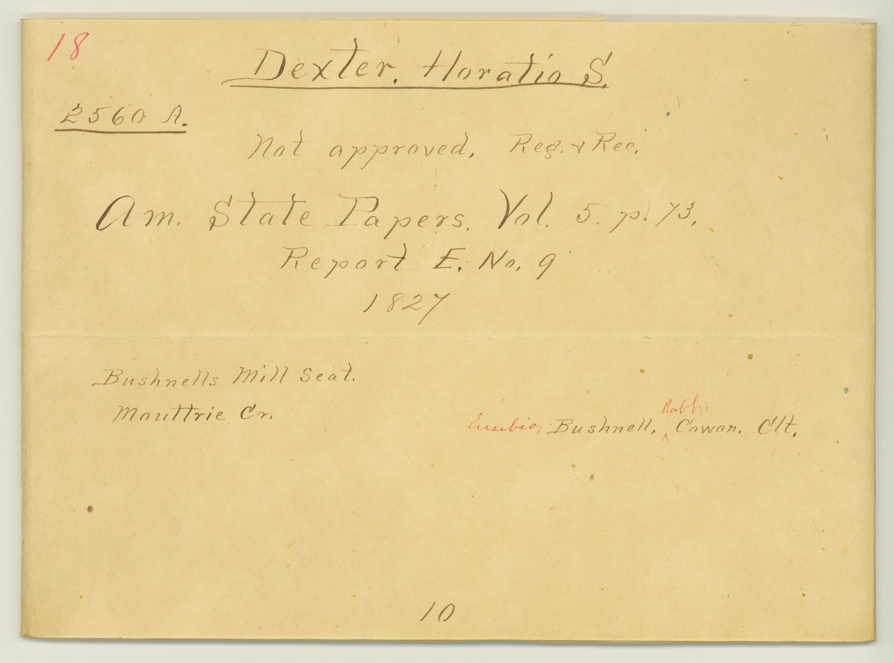 18
Dexter. Horatio S.
2560 A.
Not approved. Reg. & Rec.
Am. State Papers. Vol. 5. p. 73.
Report E. No. 9
1827
Bushnells Mill Seat.
Mauttrie Cr.
Robt.
Eusebio, Bushnell, Cowan. Clt.
10